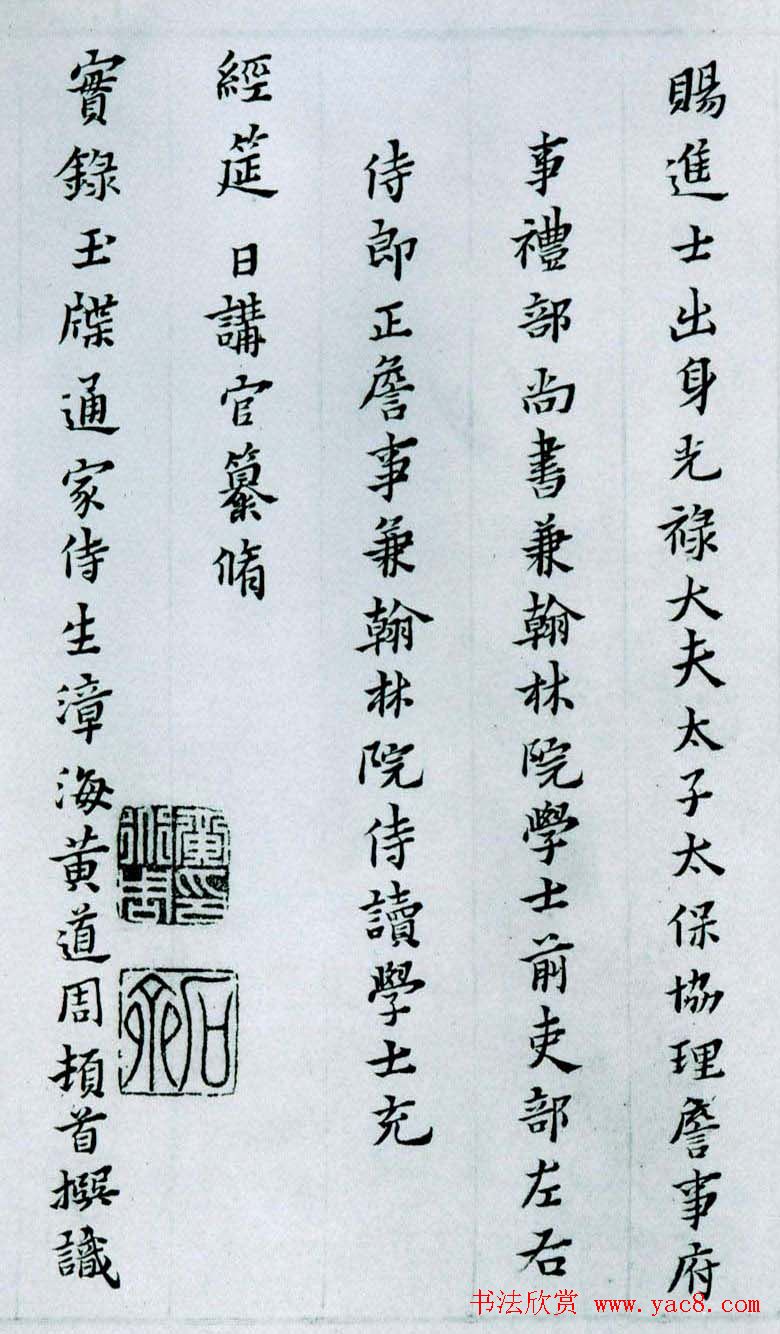 賜進士出身光祿大夫太子太保協理詹事府
事禮部尚書兼翰林院學士前吏部左右
侍郎正詹事兼翰林院侍讀學士充
經筵日講官纂脩
實錄玉牒通家侍生漳海黃道周頓首撰識
石齋
书法欣赏 www.yac8.com